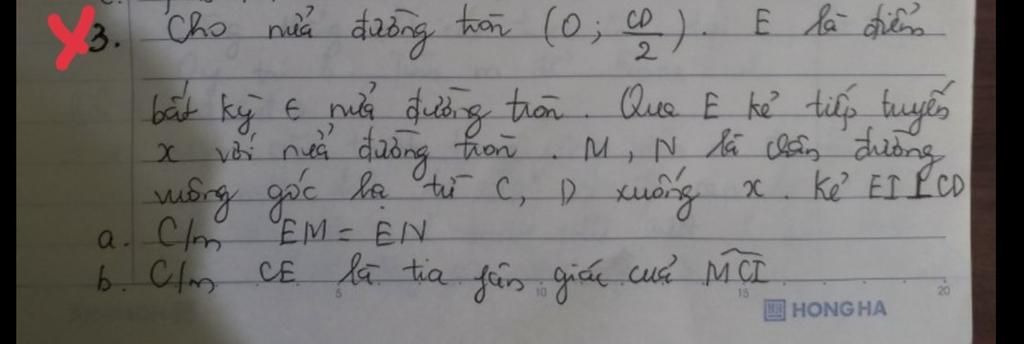 3. Cho nửa đường tròn (O; CD/2). E là điểm
bất kỳ ∈ nửa đường tròn. Qua E kẻ tiếp tuyến
x với nửa đường tròn. M, N là chân đường
vuông góc hạ từ C, D xuống x. Kẻ EI ⊥ CD
a. C/m EM = EN
b. C/m CE là tia fân giác cuả MCI
5 10 15 20
HONG HA